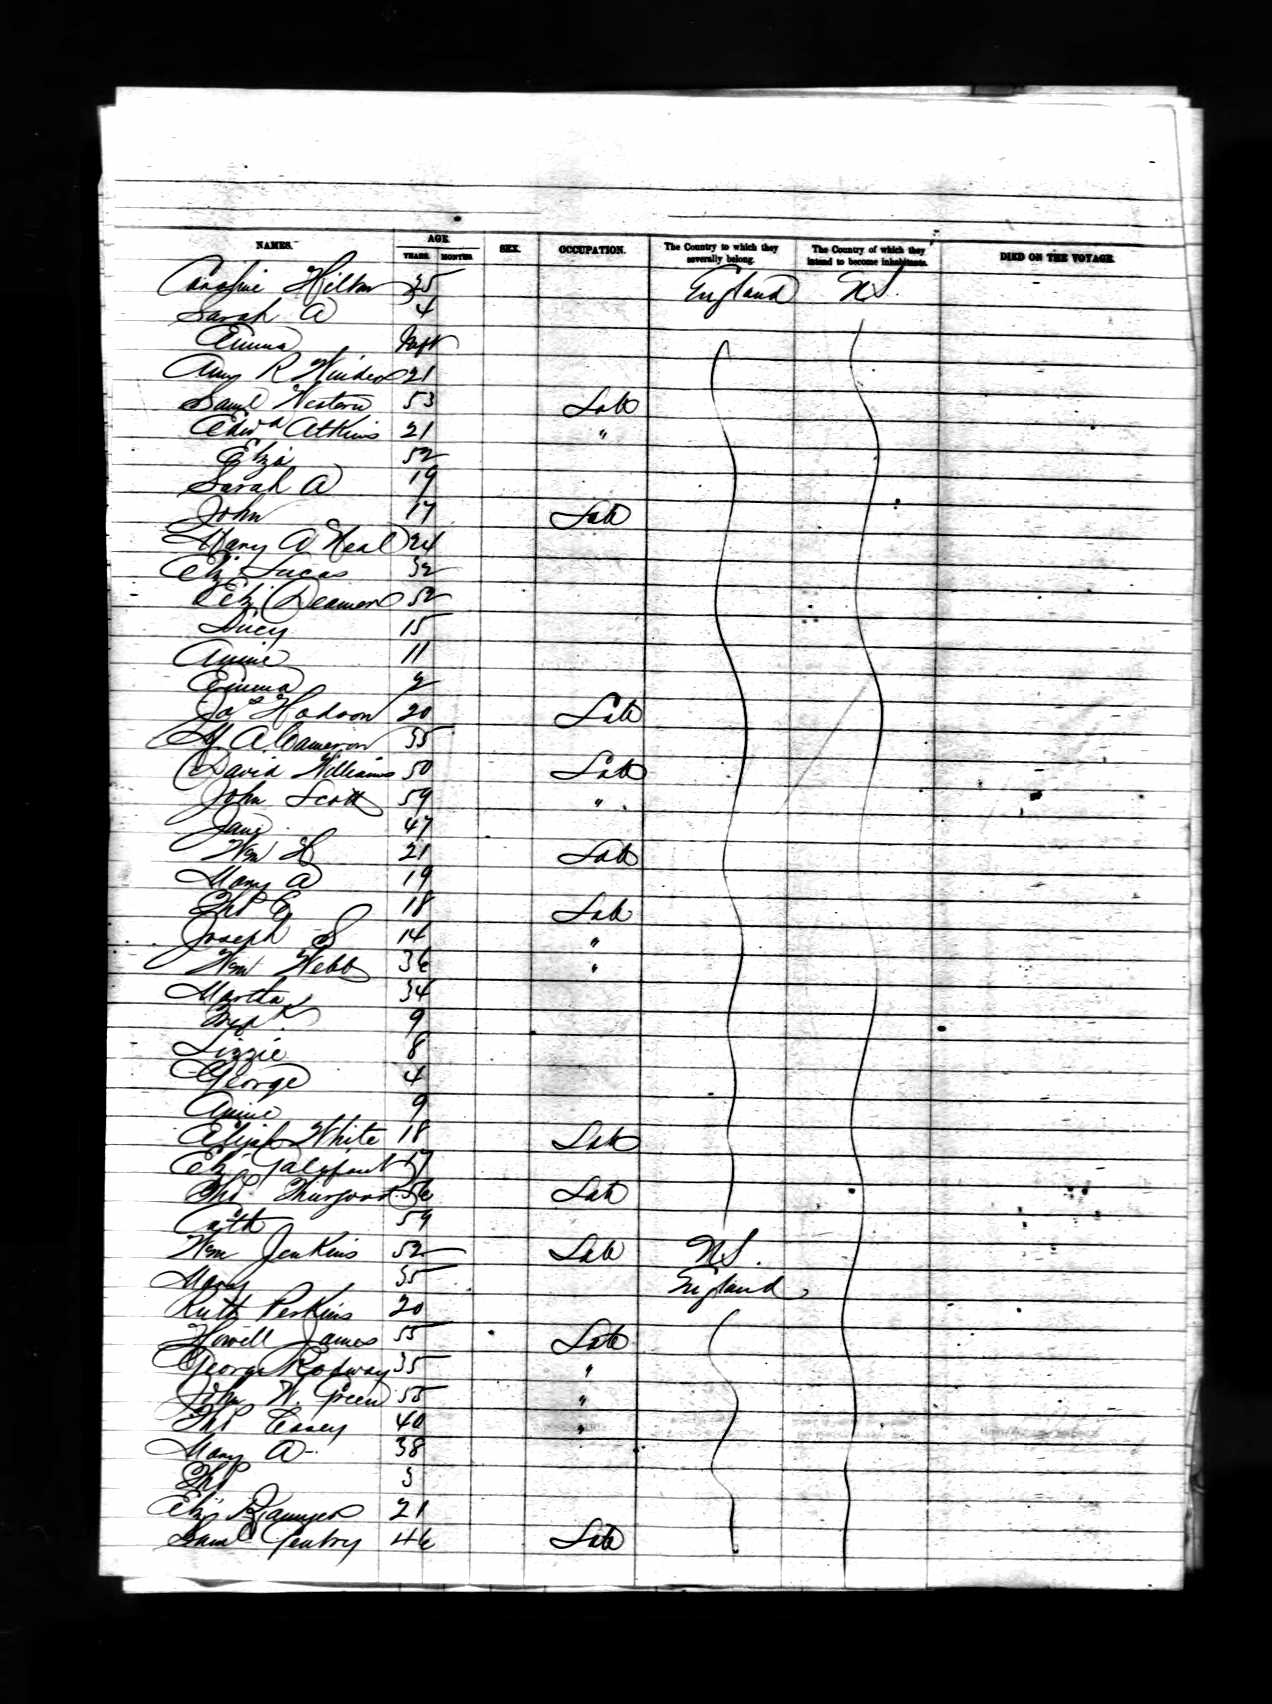 NAMES. AGE. SEX. OCCUPATION. The Country to which they severally belong. The Country of which they intend to become inhabitants. DIED ON THE VOYAGE.
YEARS. MONTHS.
Caroline Hilton 35 England U.S.
Sarah A 4
Emma Inft
Amy R 21
Saml Western 53 Lab
Edwd Atkins 21 "
Eliza 52
Sarah A 19
John 17 Lab
Mary A Neal 24
Eliz Lucas 32
Eliz Deamen 52
Lucy 15
Annie 11
Emma 2
Jas Hodson 20 Lab
M A Cameron 35
David Williams 50 Lab
John Scott 59 "
Jane 47
Wm H 21 Lab
Mary A 19
Thos E 18 Lab
Joseph S 14 "
Wm Webb 36 "
Martha 34
Fredk 9
Lizzie 8
George 4
Annie 9
Elijah White 18 Lab
Eliz 17
Thos 56 Lab
Cath 59
Wm Jenkins 52 Lab U.S.
Mary 35 England
Ruth Perkins 20
Howell James 55 Lab
George Rodway 35 "
John W. Green 55 "
Thos Casey 40 "
Mary A 38
Thos 3
Eliz 21
Saml Gentry 46 Lab